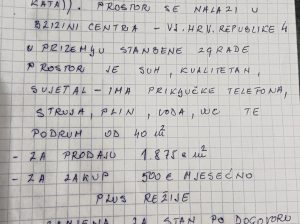 KATA)). PROSTOR SE NALAZI U
BLIZINI CENTRA - VJ. HRV. REPUBLIKE 4
U PRIZEMJU STANBENE ZGRADE
PROSTOR JE SUH, KVALITETAN,
SVJETAL - IMA PRIKLJUČKE TELEFONA,
STRUJA, PLIN, VODA, WC TE
PODRUM OD 40 m²
- ZA PRODAJU 1.875 € m²
- ZA ZAKUP 500 € MJESEČNO
PLUS REŽIJE
ZAMJENA ZA STAN PO DOGOVORU